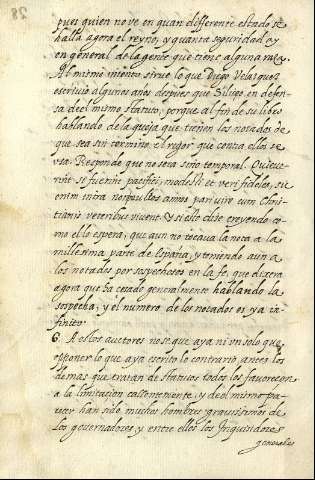 28
pues quien no ve en quan differente estado se
halla agora el reyno, y quanta seguridad ay
en general de la gente que tiene alguna raza.
Al mismo intento sirve lo que Diego Velazquez
escrivio algunos años despues que Siliceo en defen
sa del mismo statuto, porque al fin de su libro
hablando de la queja que tienen los notados de
que sea sin termino el rigor que contra ellos se
usa. Responde que no sera sino temporal. Quiesce
rent si fuerint pacifici, modesti et veri fideles, sic
enim intra nos paulos annos pariure cum Chris
tianis veteribus vivent. & si esto dize creyendo co
mo ello espera, que aun no tocava la nota a la
millesima parte de España, y teniendo aun a
los notados por sospechosos en la fe, que dixera
agora que ha cesado generalmente hablando la
sospecha, y el numero de los notados es ya in
finito.
6. A estos auctores no se que aya ni un solo que
opponer lo que aya escrito lo contrario, antes los
demas que tratan de statutos todos los favorecen
a la limitacion callentemente, y deste mismo pa
recer han sido muchos hombres gravissimos de
los governadores y entre ellos los Inquisidores
generales